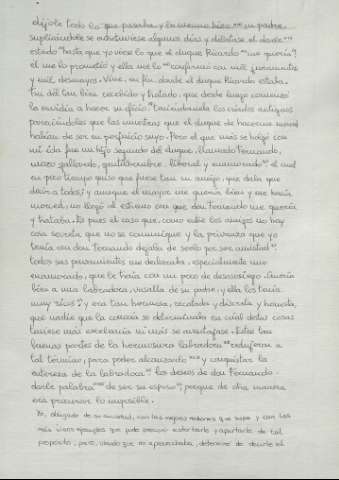 díjole todo lo que pasaba y lo mesmo hice a su padre,
suplicándole se entretuviese algunos días y dilatase el darle
estado hasta que yo viese lo que el duque Ricardo me quería;
él me lo prometió y ella me lo confirmó con mil juramentos
y mil desmayos. Vine, en fin, donde el duque Ricardo estaba.
Fui dél tan bien recebido y tratado, que desde luego comenzó
la envidia a hacer su oficio, teniéndomela los criados antiguos,
pareciéndoles que las muestras que el duque de hacerme merced
habían de ser en perjuicio suyo. Pero el que más se holgó con
mi ida fue un hijo segundo del duque, llamado Fernando,
mozo gallardo, gentilhombre, liberal y enamorado, el cual
en poco tiempo quiso que fuese tan su amigo, que daba que
decir a todos; y aunque el mayor me quería bien y me hacía
merced, no llegó al estremo con que don Fernando me quería
y trataba. Es pues el caso que, como entre los amigos no hay
cosa secreta que no se comunique y la privanza que yo
tenía con don Fernando dejaba de serlo por ser amistad,
todos sus pensamientos me declaraba, especialmente uno
enamorado, que le traía con un poco de desasosiego. Quería
bien a una labradora, vasalla de su padre, y ella los tenía
muy ricos, y era tan hermosa, recatada y discreta y honesta,
que nadie que la conocía se determinaba en cuál destas cosas
tuviese más excelencia ni más se aventajase. Estas tan
buenas partes de la hermosura labradora redujeron a
tal término, para poder alcanzarlo y conquistar la
entereza de la labradora los deseos de don Fernando.
darle palabra de ser su esposo, porque de otra manera
era procurar lo imposible.
Yo, obligado de su amistad, con las mejores razones que supe y con los
más vivos ejemplos que pude procuré estorbarle y apartarle de tal
propósito, pero, viendo que no aprovechaba, determiné de decirle el